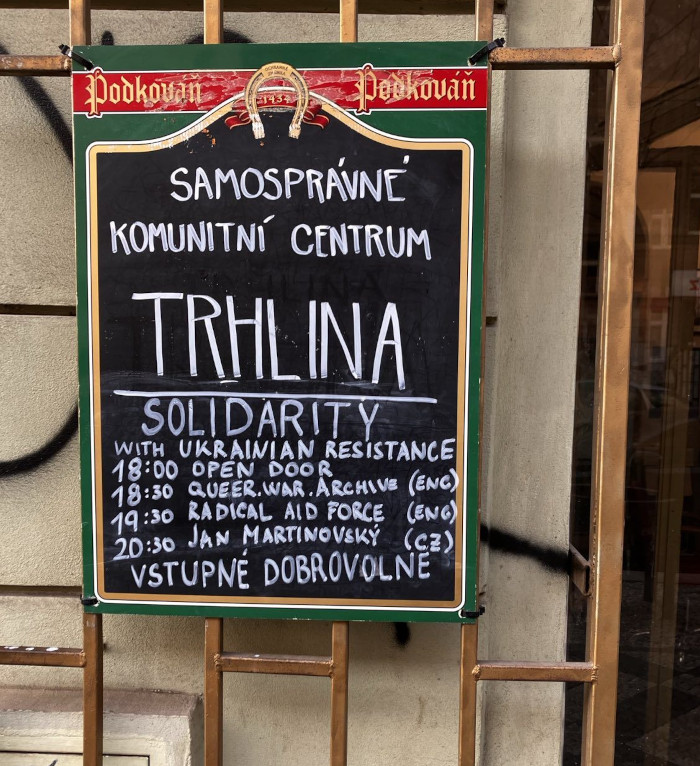 Podkováň Podkováň
1434
SAMOSPRÁVNÉ
KOMUNITNÍ CENTRUM
TRHLINA
SOLIDARITY
WITH UKRAINIAN RESISTANCE
18:00 OPEN DOOR
18:30 QUEER.WAR.ARCHIVE (ENG)
19:30 RADICAL AID FORCE (ENG)
20:30 JAN MARTINOVSKÝ (CZ)
VSTUPNÉ DOBROVOLNÉ